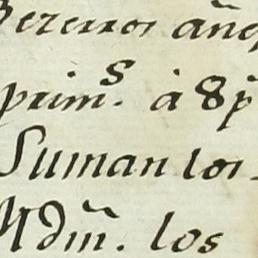 Bezerros añe
prim.s à 8 p
Suman los
Adm̃. los